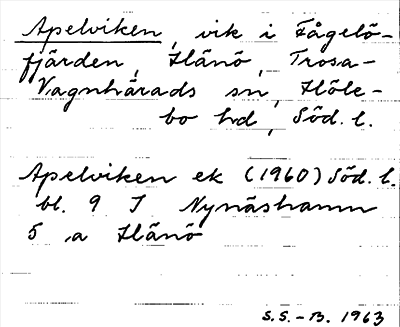 Apelviken, vik i Fågelö-
fjärden, Hånö, Trosa-
Vagnhärads sn, Höle-
bo hd, Söd. l.
Apelviken ek (1960) Söd. l.
bl. 9 I Nynäshamn
5 ,a Hånö
S.S.-B. 1963